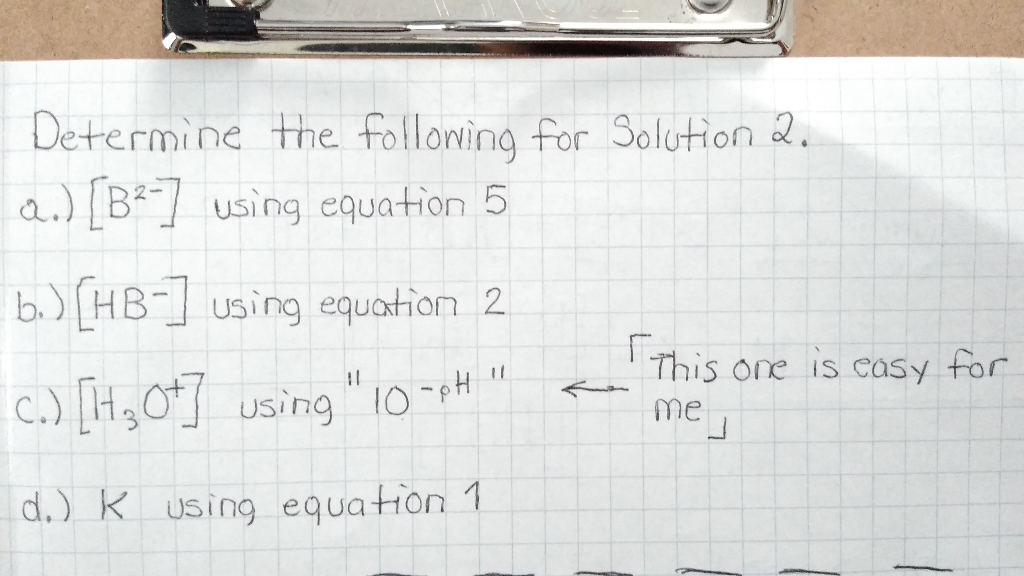 Determine the following for Solution 2.
a.) [B²⁻] using equation 5
b.) [HB⁻] using equation 2
c.) [H₃O⁺] using "10⁻ᵖᴴ" ← 「This one is easy for
me」
d.) K using equation 1